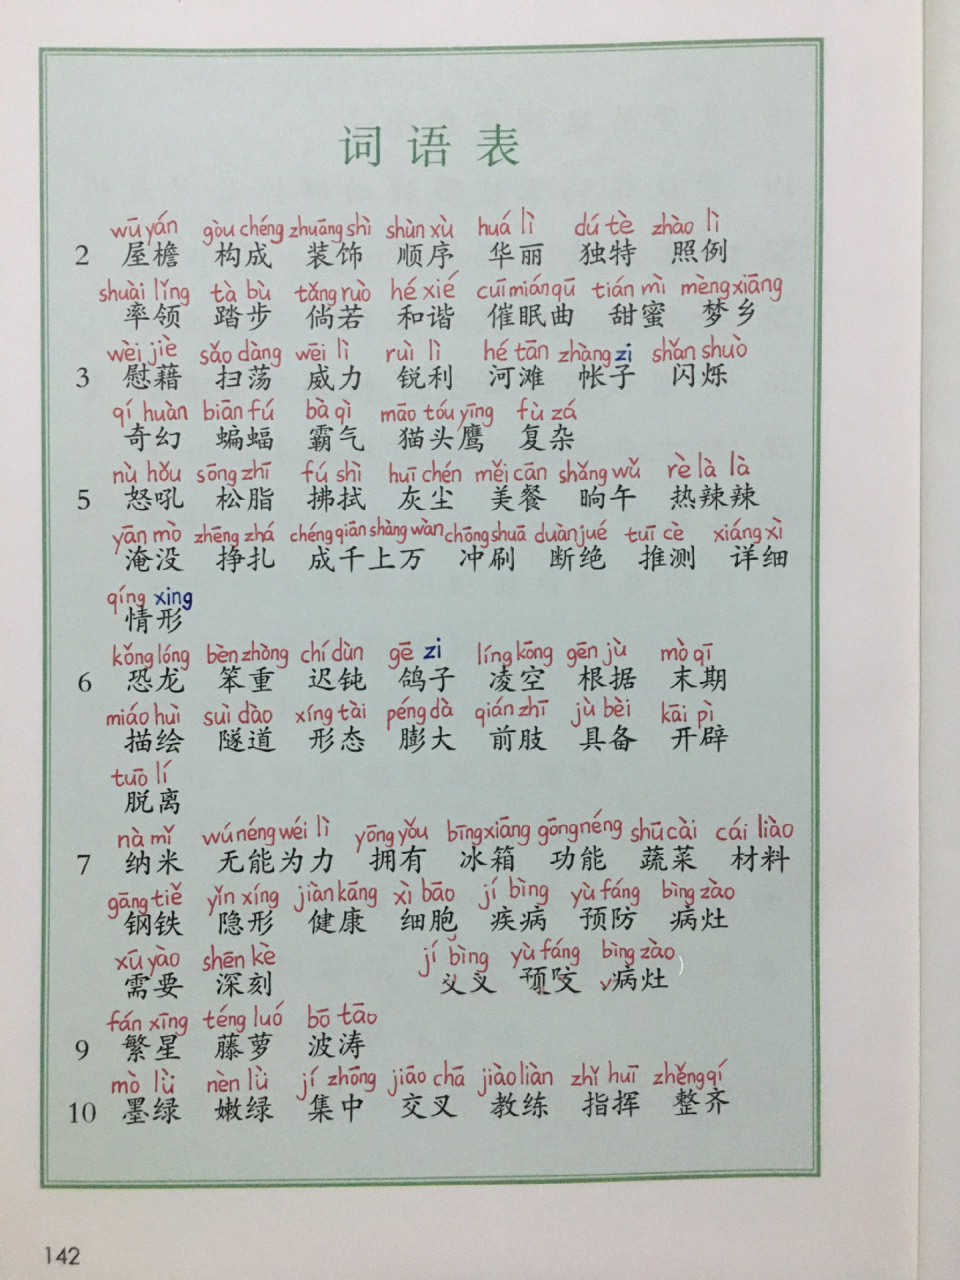 词语表
wū yán gòu chéng zhuāng shì shùn xù huá lì dú tè zhào lì
2 屋檐 构成 装饰 顺序 华丽 独特 照例
shuài lǐng tà bù tǎng ruò hé xié cuī mián qǔ tián mì mèng xiāng
率领 踏步 倘若 和谐 催眠曲 甜蜜 梦乡
wèi jiè sǎo dàng wēi lì ruì lì hé tān zhàng zi shǎn shuò
3 慰藉 扫荡 威力 锐利 河滩 帐子 闪烁
qí huàn biān fú bà qì māo tóu yīng fù zá
奇幻 蝙蝠 霸气 猫头鹰 复杂
nù hǒu sōng zhī fú shì huī chén měi cān shǎng wǔ rè là là
5 怒吼 松脂 拂拭 灰尘 美餐 晌午 热辣辣
yān mò zhēng zhá chéng qiān shàng wàn chōng shuā duàn jué tuī cè xiáng xì
淹没 挣扎 成千上万 冲刷 断绝 推测 详细
qíng xing
情形
kǒng lóng bèn zhòng chí dùn gē zi líng kōng gēn jù mò qī
6 恐龙 笨重 迟钝 鸽子 凌空 根据 末期
miáo huì suì dào xíng tài péng dà qián zhī jù bèi kāi pì
描绘 隧道 形态 膨大 前肢 具备 开辟
tuō lí
脱离
nà mǐ wú néng wéi lì yōng yǒu bīng xiāng gōng néng shū cài cái liào
7 纳米 无能为力 拥有 冰箱 功能 蔬菜 材料
gāng tiě yǐn xíng jiàn kāng xì bāo jí bìng yù fáng bìng zào
钢铁 隐形 健康 细胞 疾病 预防 病灶
xū yào shēn kè jí bìng yù fáng bìng zào
需要 深刻 病灶
fán xīng téng luó bō tāo
9 繁星 藤萝 波涛
mò lǜ nèn lǜ jí zhōng jiāo chā jiào liàn zhǐ huī zhěng qí
10 墨绿 嫩绿 集中 交叉 教练 指挥 整齐
142